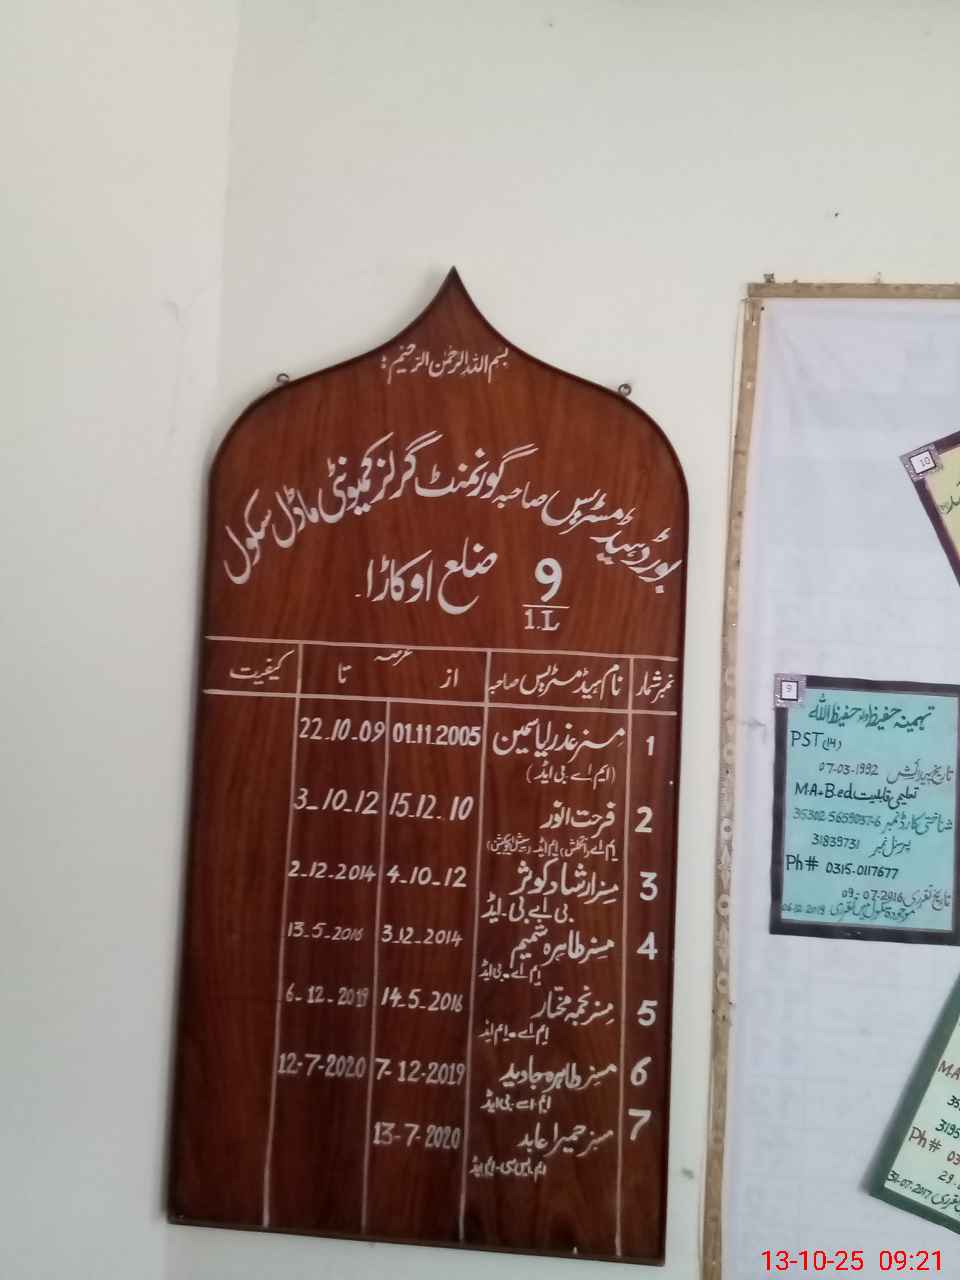 بسم اللہ الرحمٰن الرحیم
بورڈ ہیڈ مسٹریس صاحبہ گورنمنٹ گرلز کمیونٹی ماڈل سکول
9
1.L
ضلع اوکاڑا
نمبر شمار نام ہیڈ مسٹریس صاحبہ عرصہ از تا کیفیت
1 مسز عذرا یاسمین 01.11.2005 22.10.09
(ایم اے بی ایڈ)
2 فرحت انور 15.12.10 3-10-12
ایم اے (انگلش) ایم ایڈ (سپیشل ایجوکیشن)
3 مسز ارشاد کوثر 4-10-12 2-12-2014
بی اے بی-ایڈ
4 مسز طاہرہ شمیم 3-12-2014 13-5-2016
ایم اے-بی ایڈ
5 مسز نجمہ مختار 14-5-2016 6-12-2019
ایم اے-ایم ایڈ
6 مسز طاہرہ جاوید 7-12-2019 12-7-2020
ایم اے-بی ایڈ
7 مسز حمیرا عابد 13-7-2020
ایم ایس سی-ایم ایڈ
10
9
تہمینہ حفیظ d/o حفیظ اللہ
PST(14)
تاریخ پیدائش 07-03-1992
تعلیمی قابلیت M.A+B.ed
شناختی کارڈ نمبر 35302-5659037-6
پرسنل نمبر 31839731
Ph# 0315-0117677
تاریخ تقرری 09-07-2016
موجودہ سکول میں تقرری 06-12-2019
M.A
35
3195
Ph# 03
29.
31-07-2017
13-10-25 09:21